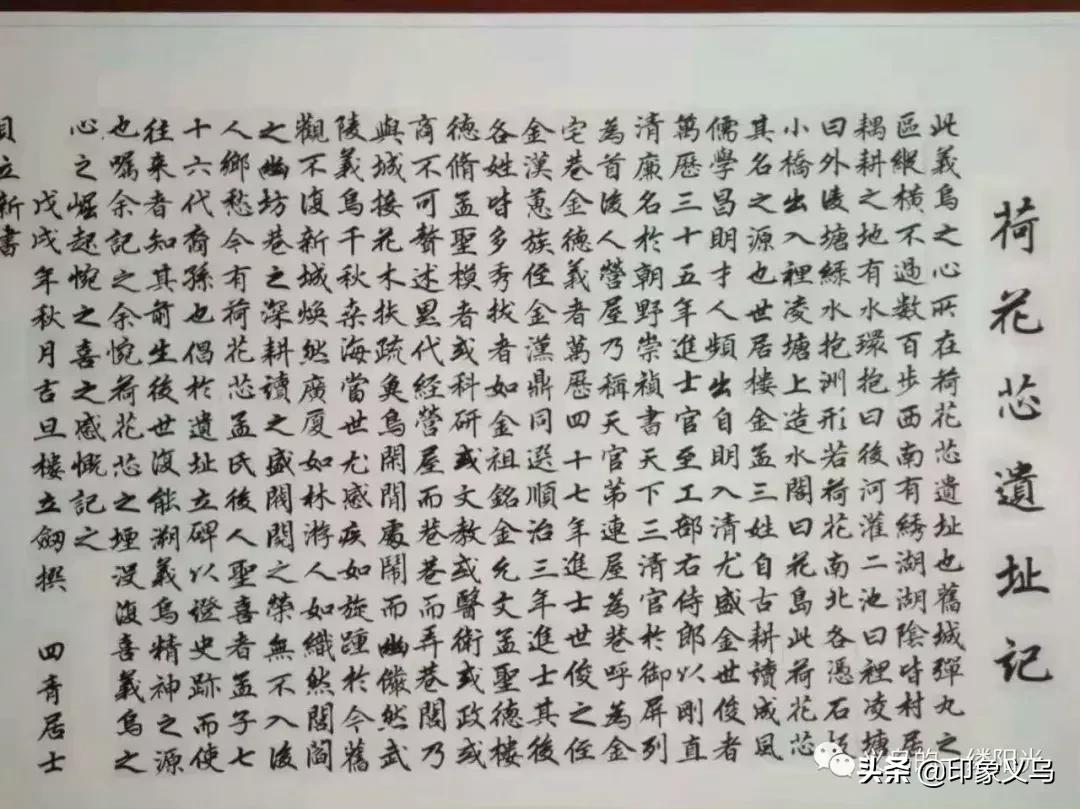 荷花芯遺址記
此義烏之心所在荷花芯遺址也舊城彈丸之
區縱橫不過數百步西南有綉湖湖陰皆村居
耦耕之地有水環抱曰後河灌二池曰裡凌塘
曰外陵塘綠水抱洲形若荷花南北各憑石
小橋出入裡凌塘上造水閣曰花島此荷花芯
其名之源也世居樓金孟三姓自古耕讀成風
儒學昌明才人頻出自明入清尤盛金世俊者
萬歷三十五年進士官至工部右侍郎以剛直
清廉名於朝野崇禎書天下三清官於御屏列
為首後人營屋乃稱天官第連屋為巷呼為金
宅巷金德義者萬歷四十七年進士世俊之侄
金漢蕙族侄金漢鼎同選順治三年進士其後
各姓皆多秀拔者如金祖銘金允文孟聖德樓
德脩孟聖模者或科研或文教或醫術或政或
商不可贅述累代經營屋而巷巷而弄巷閣乃
與城接花木扶疏奐烏開閒處鬧而幽儼然武
陵義烏千秋桒海當世尤感疾如旋踵於今舊
觀不復新城煥然廣厦如林游人如織然閭閻
之幽坊巷之深耕讀之盛閥閱之榮無不入後
人鄉愁今有荷花芯孟氏後人聖喜者孟子七
十六代裔孫也倡於遺址立碑以證史跡而使
往来者知其前生後世復能溯義烏精神之源
也囑余記之余惋荷花芯之堙沒復喜義烏之
心之崛起惋之喜之感慨記之
戊戌年秋月吉旦樓立劒撰 四青居士
立新書
义乌的一缕阳光
头条 @印象义乌